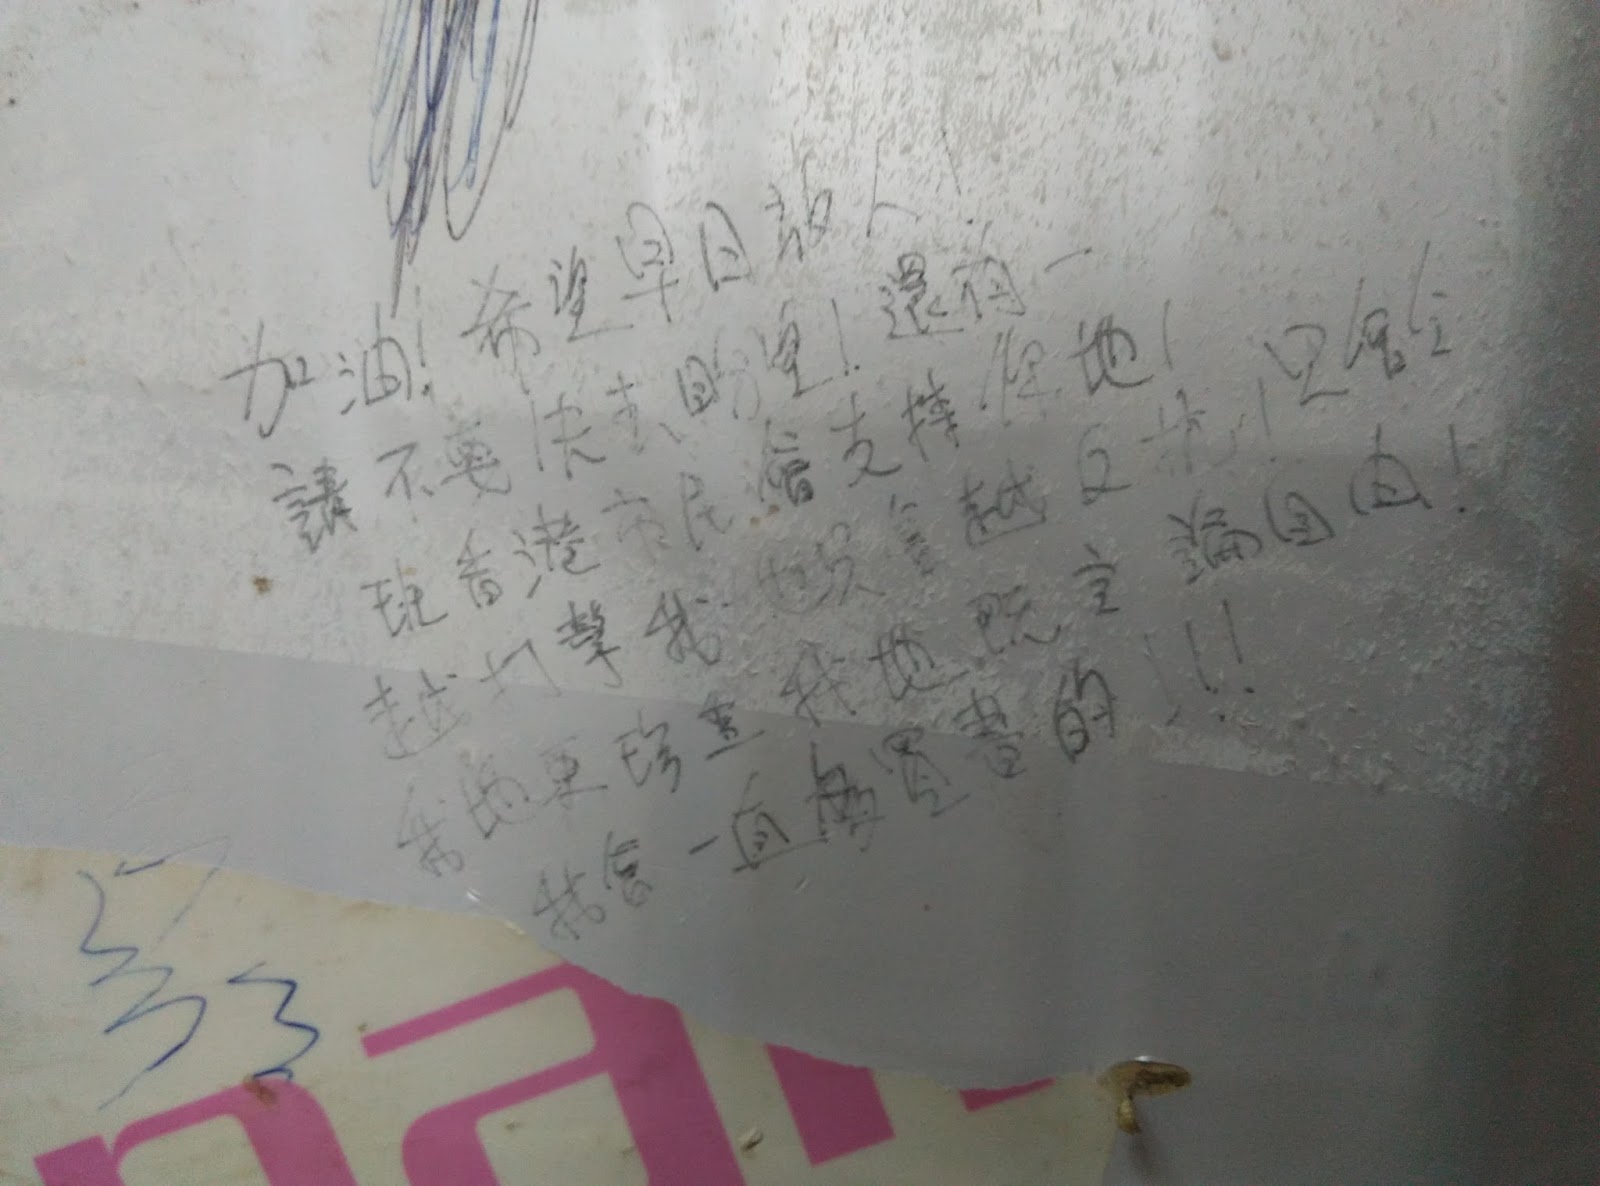 加油！希望早日放人！
請不要失去盼望！還有一
班香港市民會支持你地！
越打擊我地只會越反抗！只會令
我地更珍重我地既言論自由！
我會一直再買書的！！！